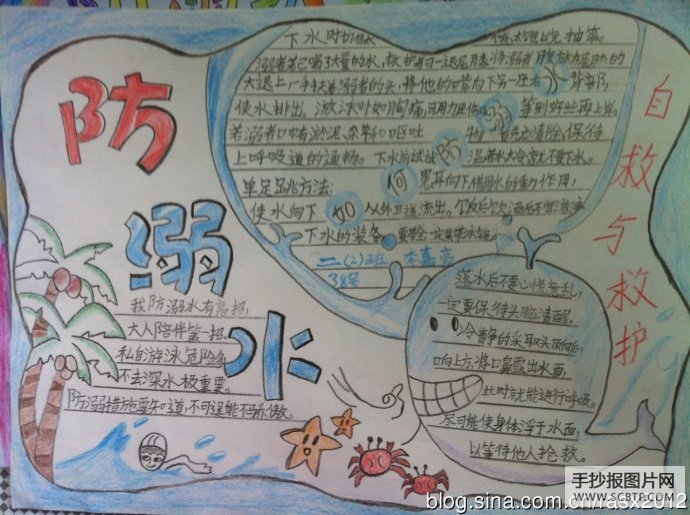 防溺水
自救与救护
下水时切
溺者若已喝了大量的水,救护者可一退屈膝,将溺者腹放在屈膝的
大退上,一手扶着溺者的头,将他的口嘴向下另一压右 背部
使水排出。游泳时如胸痛可用力压伤 等到好些再上岸。
若溺者口嘴有淤泥、杂草和呕吐 物 首先应清除,保待
上呼吸道的通畅。下水前试试 温若水太冷就不要下水。
单足跳方法: 患耳向下,借用水的重力作用,
使水向下 从外耳道流出。
下水的装备 要带全一定要带水镜。
如何防溺水
二(2)班 李嘉
38号
我防溺水有高招,
大人陪伴第一招。
私自游泳危险多,
不去深水极重要。
防溺措施要知道,不可逞能不骄傲。
落水后不要心慌意乱,
一定要保待头脑清醒。
冷静的采取头顶向后,
口向上方,将口鼻露出水面,
此时就能进行呼吸。
尽可能使身体浮于水面,
以等待他人抢救。
手抄报图片网
WWW.SCBTP.COM
blog.sina.com.cn/rasx2012